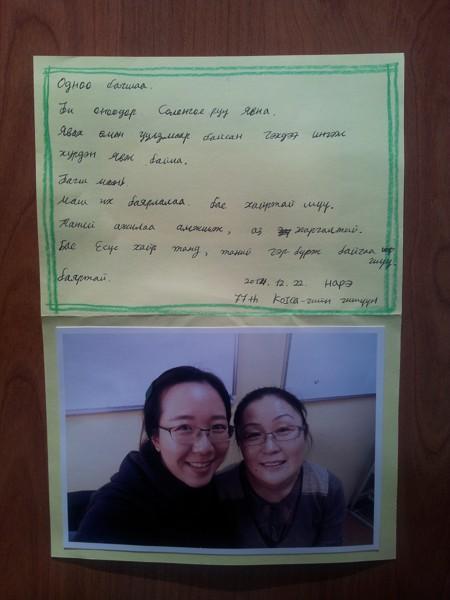 Одноо багшаа.
Би өнөөдөр Солонгос руу явна.
Явах өмнө уулзмаар байсан гэхдээ ингэж
хурдэн явж байна.
Багш мань
Маш их баярлалаа. бас хайртай шүү.
Таний ажилаа амжилж, аз жаргалтай.
Бас Есүс хайр танд, таний гэр бүрж байгаа
шүү.
баяртай. 2014. 12. 22. НАРЭ
77th KOICA-гийн гишүүн